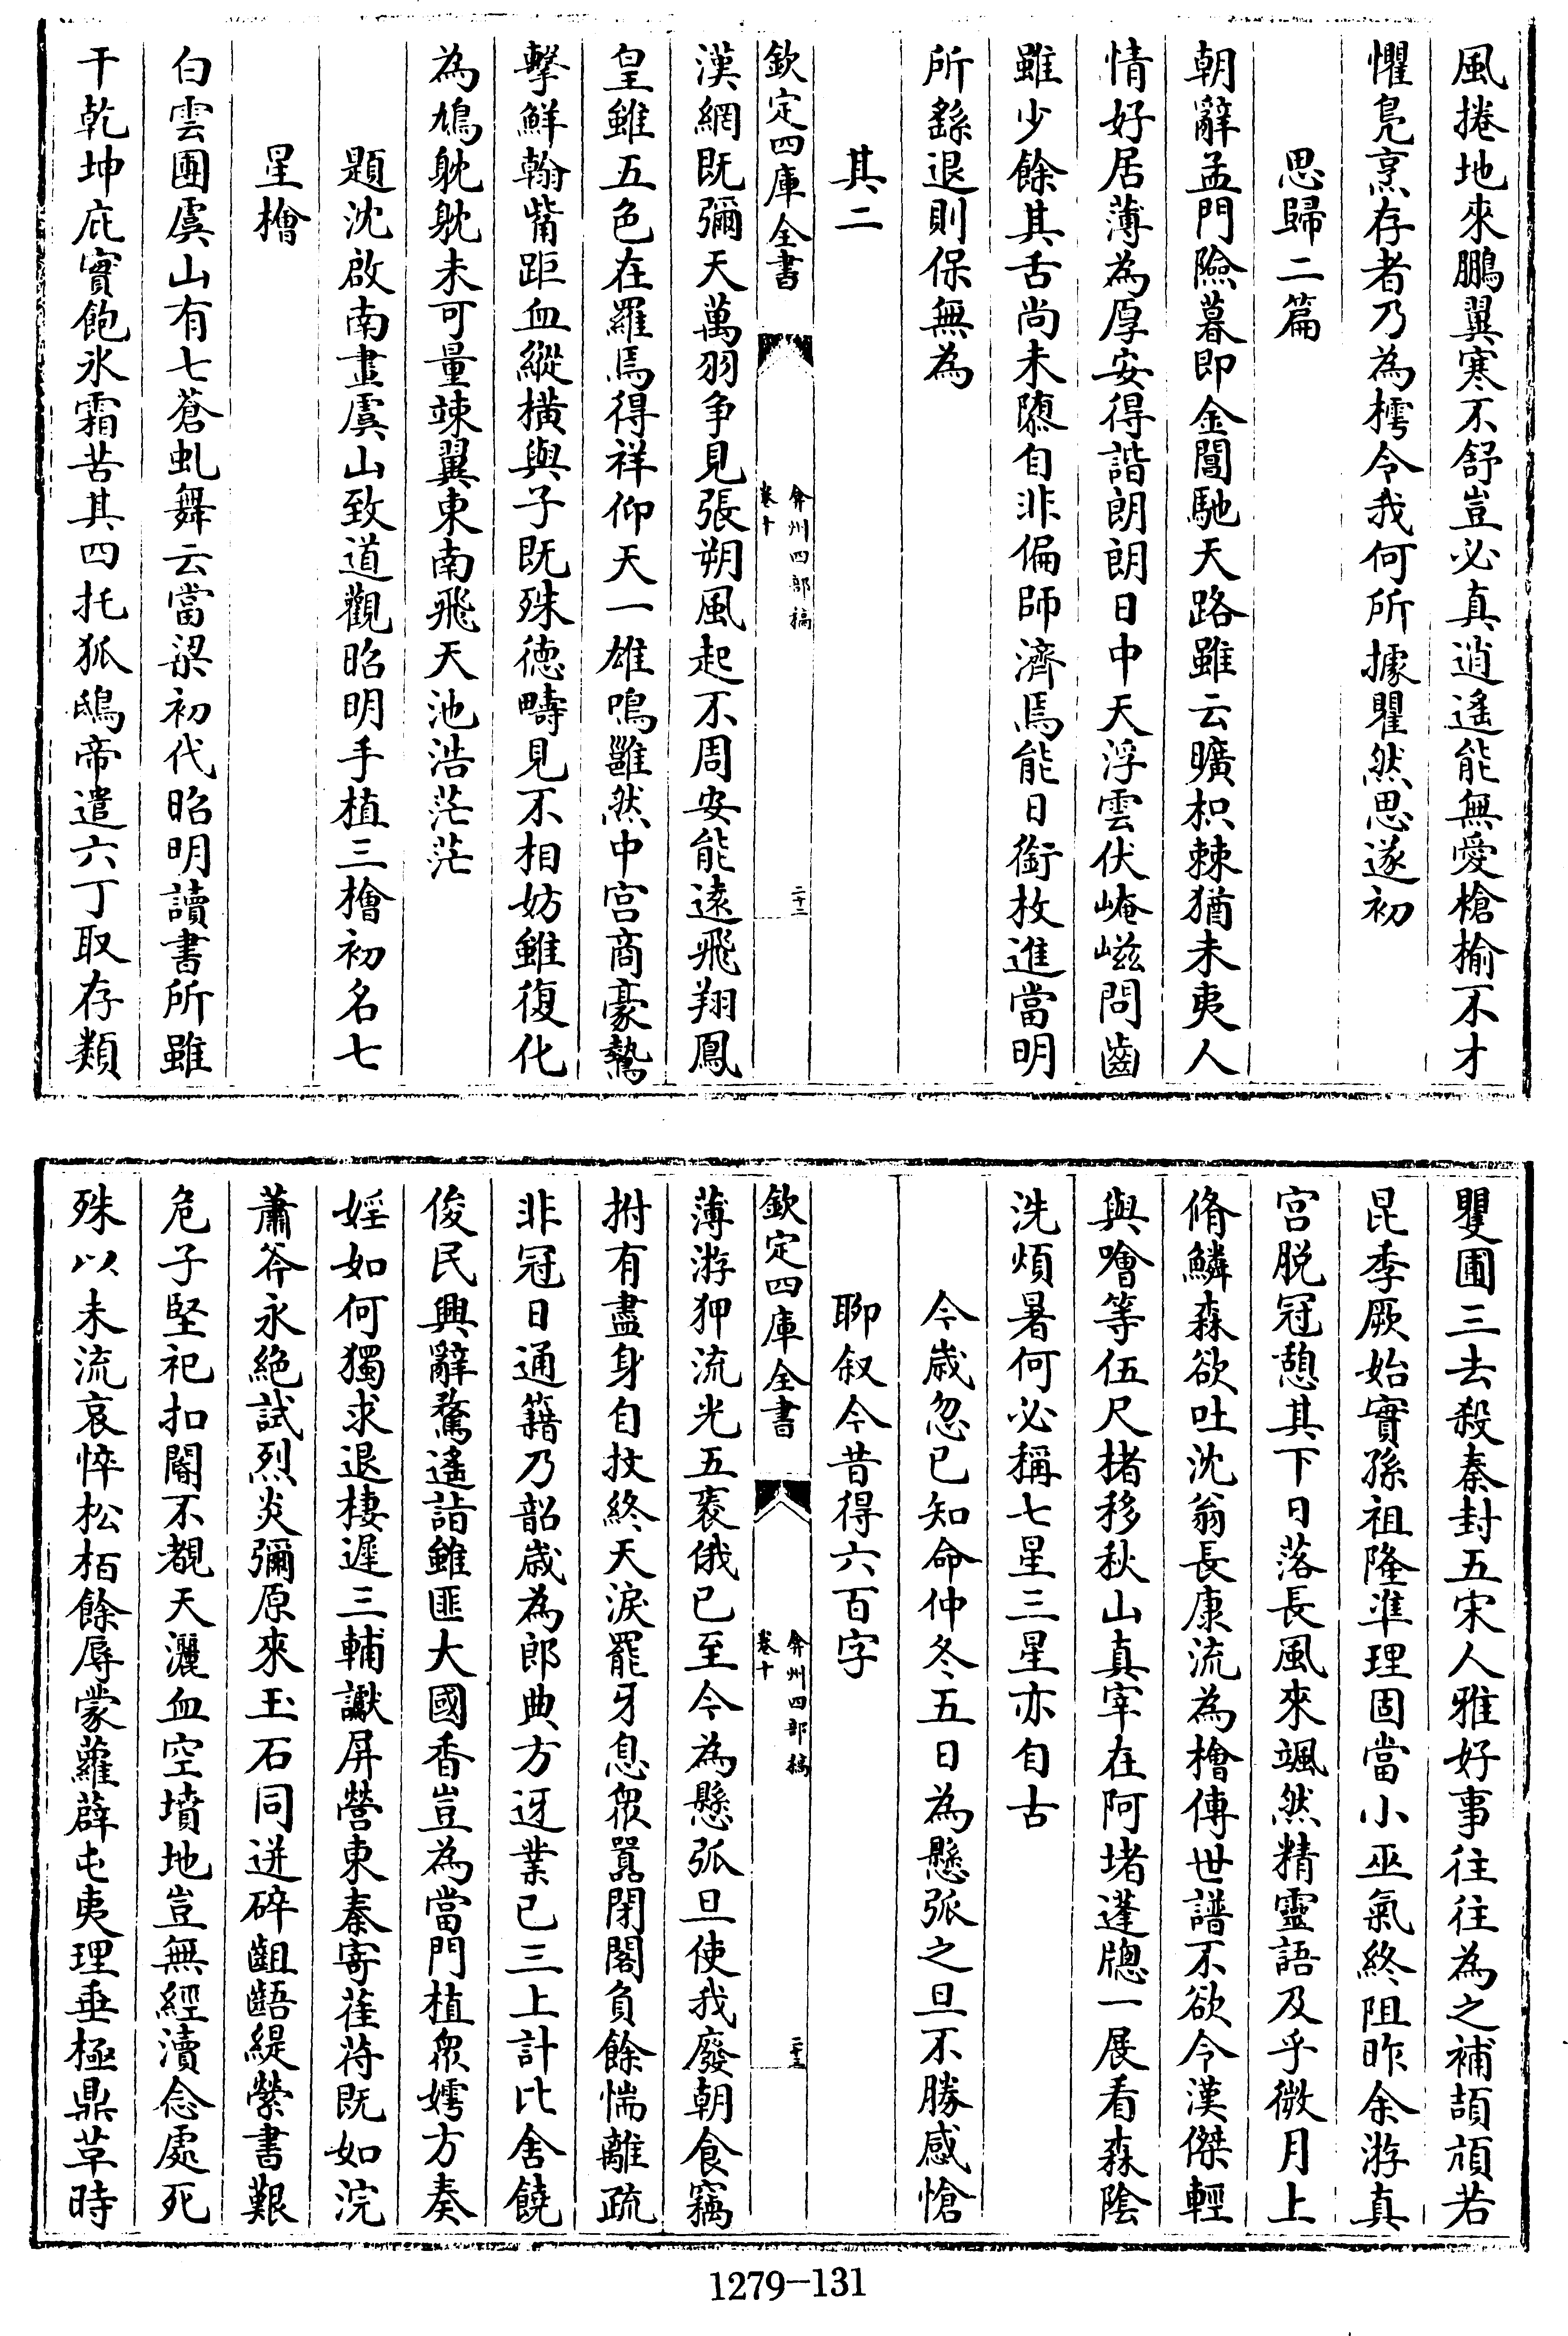 風捲地來鵬翼寒不舒豈必真逍遙能無愛槍榆不才
懼鳧烹存者乃為樗令我何所據瞿然思遂初
思歸二篇
朝辭孟門險暮即金閨馳天路雖云曠枳棘猶未夷人
情好居薄為厚安得諧朗朗日中天浮雲伏崦嵫問齒
雖少餘其舌尚未隳自非偏師濟焉能日銜枚進當明
所繇退則保無為
其二
欽定四庫全書
弇州四部稿
卷十
二十二
漢網既彌天萬羽争見張朔風起不周安能遠飛翔鳳
皇雖五色在羅焉得祥仰天一雄鳴雝然中宫商豪鷙
擊鮮翰觜距血縱橫與子既殊德疇見不相妨雖復化
為鳩眈眈未可量竦翼東南飛天池浩茫茫
題沈啟南畫虞山致道觀昭明手植三檜初名七
星檜
白雲團虞山有七蒼虬舞云當梁初代昭明讀書所雖
干乾坤庇實飽氷霜苦其四托狐鴟帝遣六丁取存類
瞿圃三去殺秦封五宋人雅好事往往為之補頡頏若
昆季厥始實孫祖隆準理固當小巫氣終阻昨余游真
宫脱冠憩其下日落長風來颯然精靈語及乎微月上
脩鱗森欲吐沈翁長康流為檜傳世譜不欲令漢傑輕
與噲等伍尺楮移秋山真宰在阿堵蓬牕一展看森陰
洗煩暑何必稱七星三星亦自古
今歲忽已知命仲冬五日為懸弧之旦不勝感愴
聊叙今昔得六百字
欽定四庫全書
弇州四部稿
卷十
二十三
薄游狎流光五袠俄已至今為懸弧旦使我廢朝食竊
拊有盡身自抆終天淚罷牙息眾囂閉閣負餘惴離疏
非冠日通籍乃韶歲為郎典方迓業已三上計比舍饒
俊民興辭騖遙詣雖匪大國香豈為當門植眾嫮方奏
婬如何獨求退棲遲三輔讞屏營東秦寄萑苻既如浣
蕭斧永絶試烈炎彌原來玉石同迸碎齟齬緹縈書艱
危子堅祀扣閽不覩天灑血空墳地豈無經瀆念處死
殊以未流哀悴松栢餘辱蒙蘿薜屯夷理垂極鼎草時
1279-131